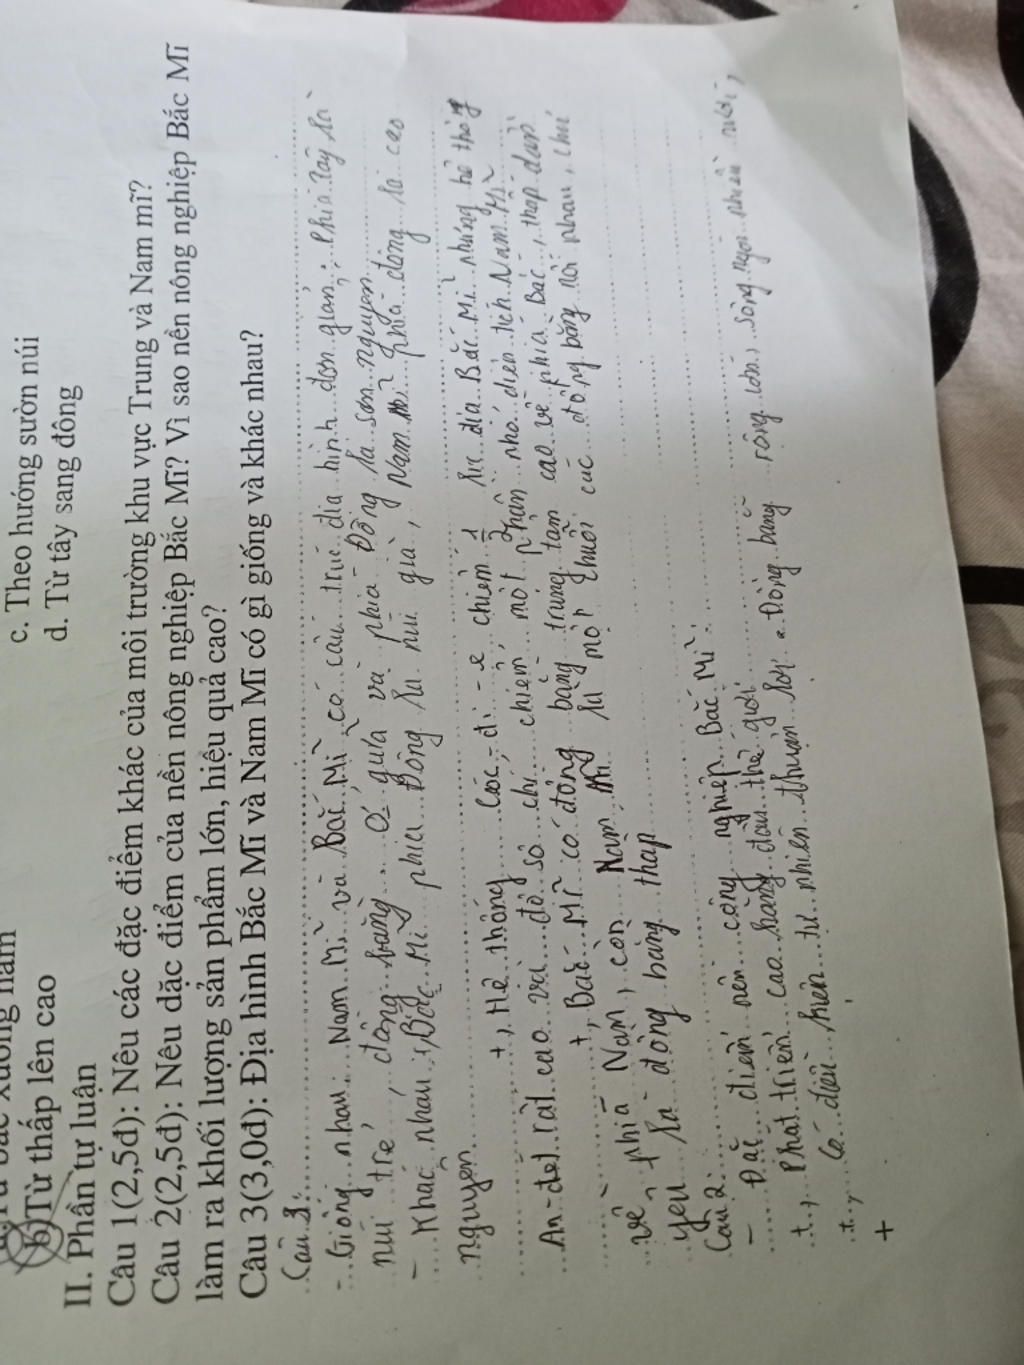 c. Theo hướng sườn núi
b. Từ thấp lên cao
d. Từ tây sang đông
II. Phần tự luận
Câu 1(2,5đ): Nêu các đặc điểm khác của môi trường khu vực Trung và Nam mĩ?
Câu 2(2,5đ): Nêu dặc điểm của nền nông nghiệp Bắc Mĩ? Vì sao nền nông nghiệp Bắc Mĩ
làm ra khối lượng sản phẩm lớn, hiệu quả cao?
Câu 3(3,0đ): Địa hình Bắc Mĩ và Nam Mĩ có gì giống và khác nhau?
Câu 3:
- Giống nhau: Nam Mĩ và Bắc Mĩ có cấu trúc địa hình đơn giản: Phía Tây là
núi trẻ, đồng bằng ở giữa và phía Đông là sơn nguyên
- Khác nhau: Bắc Mĩ phía Đông là núi già, Nam Mĩ phía đông là cao
nguyên
+, Hệ thống Cooc-đi-e chiếm 1/2 lục địa Bắc Mĩ nhưng hệ thống
An-det cao và đồ sộ chỉ chiếm một phần nhỏ diện tích Nam Mĩ
+, Bắc Mĩ có đồng bằng trung tâm cao về phía Bắc, thấp dần
về phía Nam, còn Nam Mĩ là một chuỗi các đồng bằng nối nhau, chủ
yếu là đồng bằng thấp
Câu 2:
- Đặc điểm nền công nghiệp Bắc Mĩ:
+, Phát triển cao hàng đầu thế giới
+, Có điều kiện tự nhiên thuận lợi Đồng bằng rộng lớn, sông ngòi nhiều nước,
+